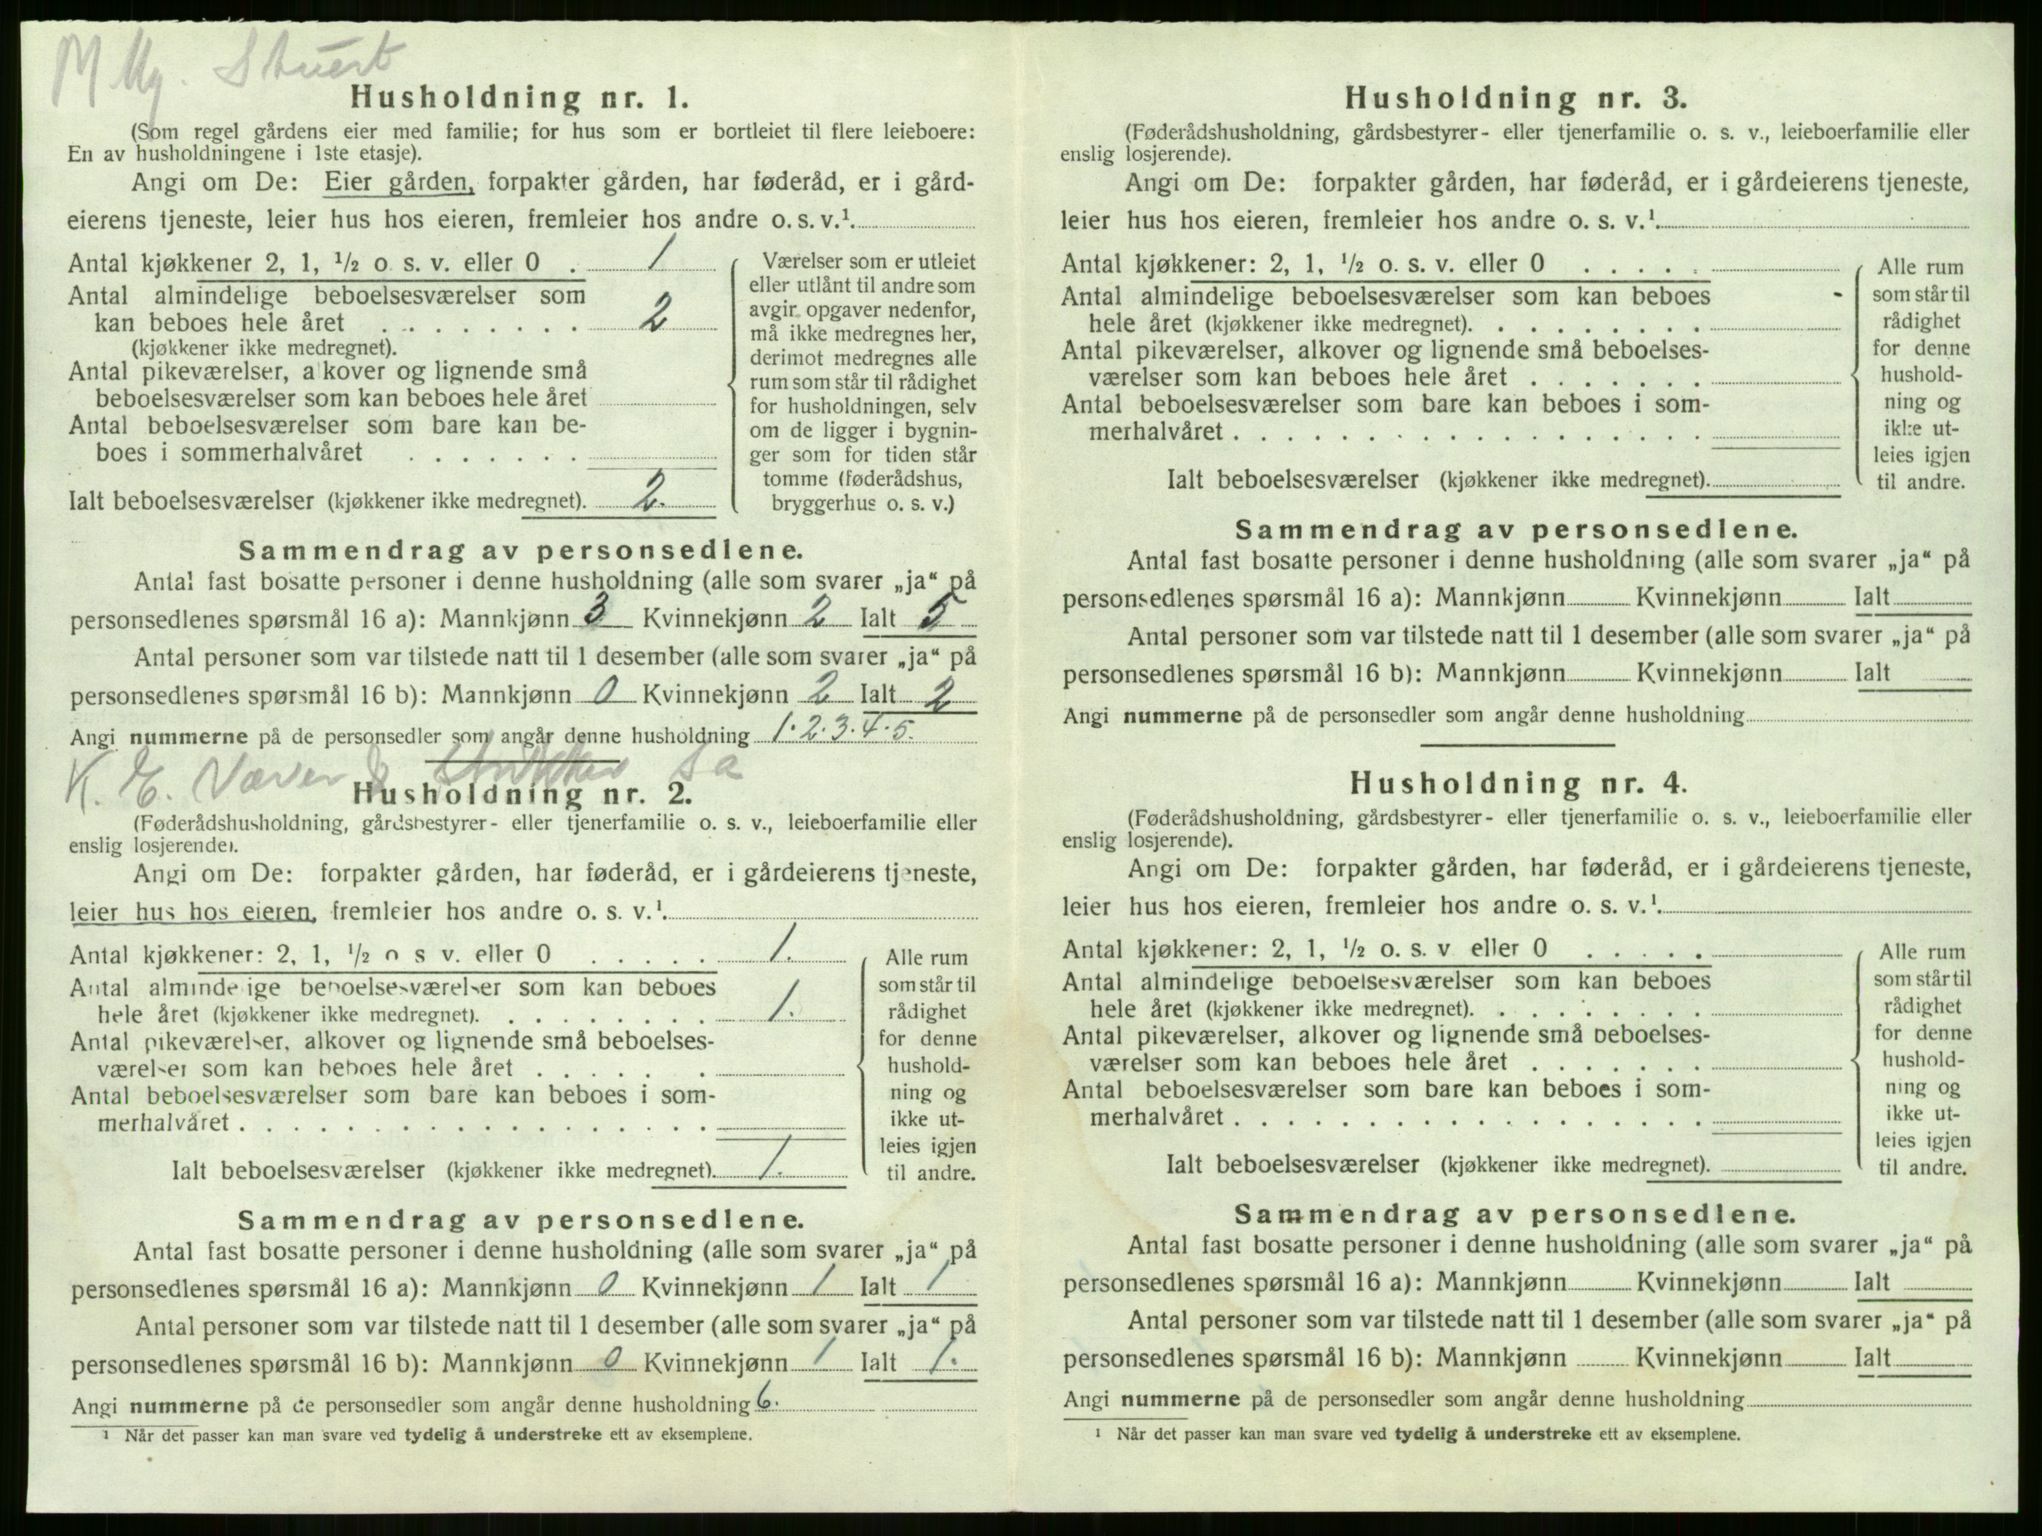 M Ug. Stuert
Husholdning nr. 1.
(Som regel gårdens eier med familie; for hus som er bortleiet til flere leieboere:
En av husholdningene i 1ste etasje).
Angi om De: Eier gården, forpakter gården, har føderåd, er i gård-
eierens tjeneste, leier hus hos eieren, fremleier hos andre o. s. v.¹
Antal kjøkkener 2, 1, ½ o s. v. eller 0 . 1
Antal almindelige beboelsesværelser som
kan beboes hele året . . . . . . . . 2
(kjøkkener ikke medregnet).
Antal pikeværelser, alkover og lignende små
beboelsesværelser som kan beboes hele året
Antal beboelsesværelser som bare kan be-
boes i sommerhalvåret . . . . . . .
Ialt beboelsesværelser (kjøkkener ikke medregnet). 2.
Værelser som er utleiet
eller utlånt til andre som
avgir opgaver nedenfor,
må ikke medregnes her,
derimot medregnes alle
rum som står til rådighet
for husholdningen, selv
om de ligger i bygnin-
ger som for tiden står
tomme (føderådshus,
bryggerhus o. s. v.)
Sammendrag av personsedlene.
Antal fast bosatte personer i denne husholdning (alle som svarer „ja“ på
personsedlenes spørsmål 16 a): Mannkjønn 3 Kvinnekjønn 2 Ialt 5
Antal personer som var tilstede natt til 1 desember (alle som svarer „ja“ på
personsedlenes spørsmål 16 b): Mannkjønn 0 Kvinnekjønn 2 Ialt 2
Angi nummerne på de personsedler som angår denne husholdning 1.2.3.4.5.
K. E. Væver & Strikker Sa
Husholdning nr. 2.
(Føderådshusholdning, gårdsbestyrer- eller tjenerfamilie o. s. v., leieboerfamilie eller
enslig losjerende).
Angi om De: forpakter gården, har føderåd, er i gårdeierens tjeneste,
leier hus hos eieren, fremleier hos andre o. s. v.¹
Antal kjøkkener: 2, 1, ½ o s v. eller 0 . . . . . 1.
Antal almindelige beboelsesværelser som kan beboes
hele året (kjøkkener ikke medregnet). . . . . . . . . 1.
Antal pikeværelser, alkover og lignende små beboelses-
værelser som kan beboes hele året . . . . . .
Antal beboelsesværelser som bare kan beboes i som-
merhalvåret . . . . . . . . . . . . . . . . .
Ialt beboelsesværelser (kjøkkener ikke medregnet). 1.
Alle rum
som står til
rådighet
for denne
hushold-
ning og
ikke ut-
leies igjen
til andre.
Sammendrag av personsedlene.
Antal fast bosatte personer i denne husholdning (alle som svarer „ja“ på
personsedlenes spørsmål 16 a): Mannkjønn 0 Kvinnekjønn 1 Ialt 1
Antal personer som var tilstede natt til 1 desember (alle som svarer „ja“ på
personsedlenes spørsmål 16 b): Mannkjønn 0 Kvinnekjønn 1 Ialt 1.
Angi nummerne på de personsedler som angår denne husholdning 6.
¹ Når det passer kan man svare ved tydelig å understreke ett av eksemplene.
Husholdning nr. 3.
(Føderådshusholdning, gårdsbestyrer- eller tjenerfamilie o. s. v., leieboerfamilie eller
enslig losjerende).
Angi om De: forpakter gården, har føderåd, er i gårdeierens tjeneste,
leier hus hos eieren, fremleier hos andre o. s. v.¹
Antal kjøkkener: 2, 1, ½ o. s. v. eller 0 . . . . .
Antal almindelige beboelsesværelser som kan beboes
hele året (kjøkkener ikke medregnet). . . . . . . . .
Antal pikeværelser, alkover og lignende små beboelses-
værelser som kan beboes hele året . . . . . . .
Antal beboelsesværelser som bare kan beboes i som-
merhalvåret . . . . . . . . . . . . . . . . . .
Ialt beboelsesværelser (kjøkkener ikke medregnet).
Alle rum
som står til
rådighet
for denne
hushold-
ning og
ikke ut-
leies igjen
til andre.
Sammendrag av personsedlene.
Antal fast bosatte personer i denne husholdning (alle som svarer „ja“ på
personsedlenes spørsmål 16 a): Mannkjønn Kvinnekjønn Ialt
Antal personer som var tilstede natt til 1 desember (alle som svarer „ja“ på
personsedlenes spørsmål 16 b): Mannkjønn Kvinnekjønn Ialt
Angi nummerne på de personsedler som angår denne husholdning
Husholdning nr. 4.
(Føderådshusholdning, gårdsbestyrer- eller tjenerfamilie o. s. v., leieboerfamilie eller
enslig losjerende).
Angi om De: forpakter gården, har føderåd, er i gårdeierens tjeneste,
leier hus hos eieren, fremleier hos andre o. s. v.¹
Antal kjøkkener: 2, 1, ½ o. s. v eller 0 . . . . .
Antal almindelige beboelsesværelser som kan beboes
hele året (kjøkkener ikke medregnet). . . . . . . . .
Antal pikeværelser, alkover og lignende små beboelses-
værelser som kan beboes hele året . . . . . . .
Antal beboelsesværelser som bare kan beboes i som-
merhalvåret . . . . . . . . . . . . . . . . . .
Ialt beboelsesværelser (kjøkkener ikke medregnet).
Alle rum
som står til
rådighet
for denne
hushold-
ning og
ikke ut-
leies igjen
til andre.
Sammendrag av personsedlene.
Antal fast bosatte personer i denne husholdning (alle som svarer „ja“ på
personsedlenes spørsmål 16 a): Mannkjønn Kvinnekjønn Ialt
Antal personer som var tilstede natt til 1 desember (alle som svarer „ja“ på
personsedlenes spørsmål 16 b): Mannkjønn Kvinnekjønn Ialt
Angi nummerne på de personsedler som angår denne husholdning
¹ Når det passer kan man svare ved tydelig å understreke ett av eksemplene.